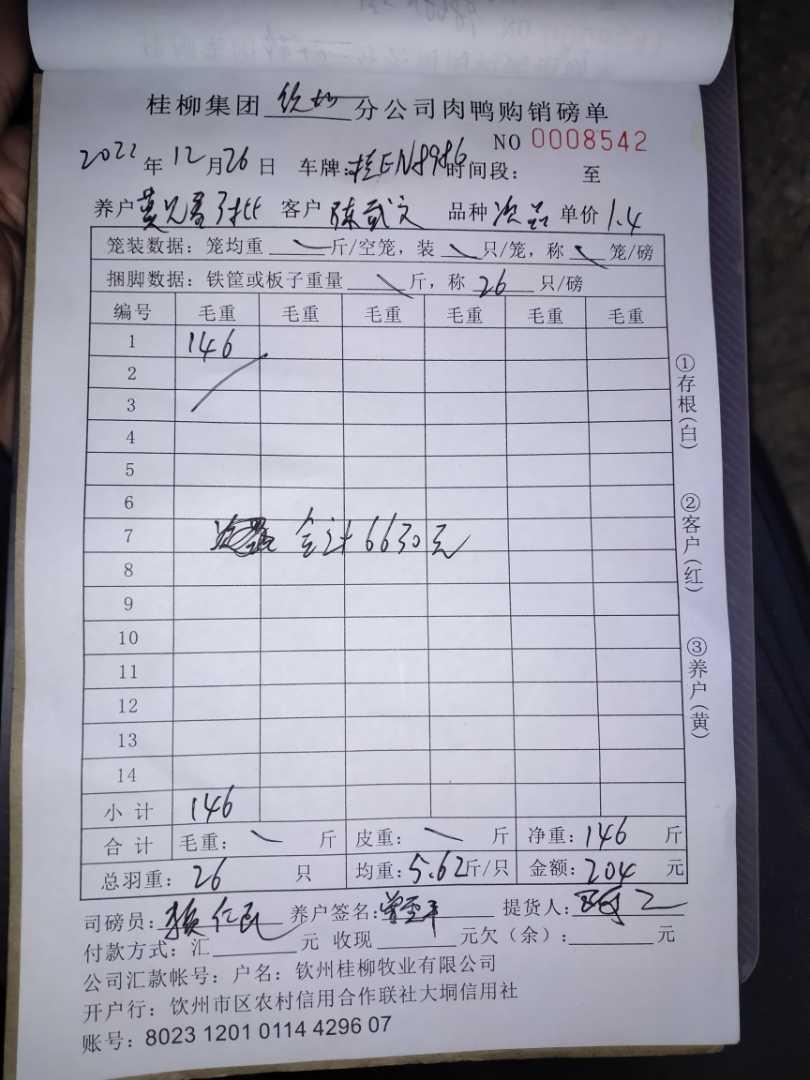 桂柳集团 钦州 分公司肉鸭购销磅单
NO 0008542
2022年12月26日 车牌:桂EN8986 时间段: 至
养户 客户 陈武文 品种 次品 单价 1.4
笼装数据: 笼均重 斤/空笼, 装 只/笼, 称 笼/磅
捆脚数据: 铁筐或板子重量 斤, 称 26 只/磅
编号 毛重 毛重 毛重 毛重 毛重 毛重
1 146
2
3
4
5
6
7 合计6630元
8
9
10
11
12
13
14
小计 146
合计 毛重: 斤 皮重: 斤 净重: 146 斤
总羽重: 26 只 均重: 5.62斤/只 金额: 204 元
司磅员: 养户签名: 提货人:
付款方式: 汇 元 收现 元欠(余): 元
公司汇款帐号: 户名: 钦州桂柳牧业有限公司
开户行: 钦州市区农村信用合作联社大垌信用社
账号: 8023 1201 0114 4296 07
①存根(白)
②客户(红)
③养户(黄)